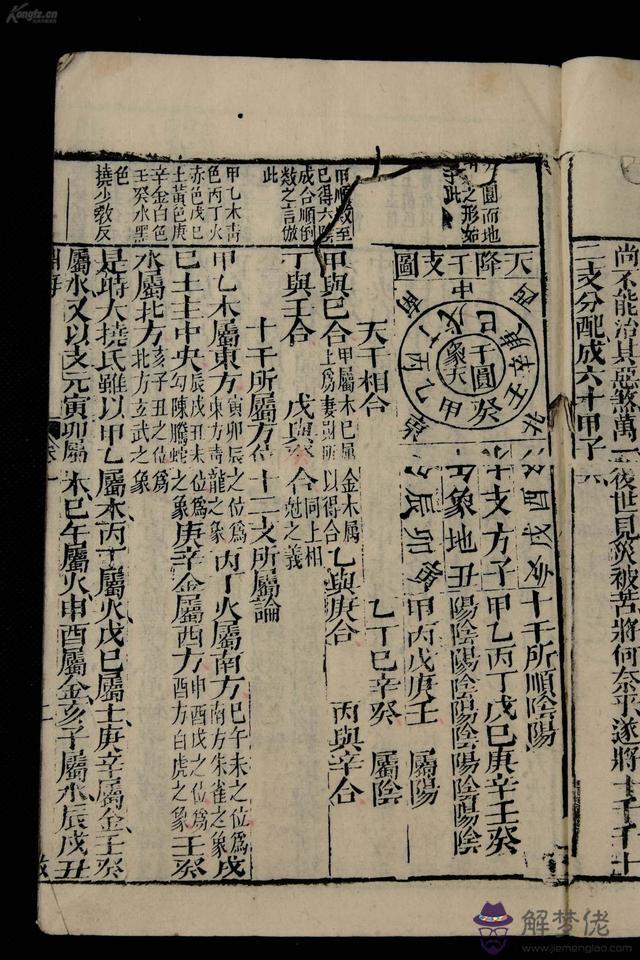 Kongfz.cn
尚不能治其惡煞萬一後世見災被苦將何奈乎遂將十干十
二支分配成六十甲子
圓而地
之形如
此
天降干支圖
東
南
西
北
中
甲
乙
丙
丁
戊
巳
庚
辛
壬
癸
干圓
象天
十支方
象地
子
丑
寅
卯
辰
酉
戌
亥
十干所順陰陽
甲乙丙丁戊巳庚辛壬癸
陽陰陽陰陽陰陽陰陽陰
甲丙戊庚壬 屬陽
乙丁巳辛癸 屬陰
天干相合
甲順數至
巳得六陰
成合順倒
數之言倣
此
甲與巳合 甲屬木巳屬土為妻財所以得合 乙與庚合 丙與辛合
丁與壬合 戊與癸合 同上相尅之義
十干所屬方位 十二支所屬論
甲乙木青
色丙丁火
赤色戊巳
土黃色庚
辛金白色
壬癸水黑
色
甲乙木屬東方 寅卯辰之位為東方青龍之象 丙丁火屬南方 巳午未之位為南方朱雀之象 戊
巳土主中央 辰戌丑未位為勾陳騰蛇之象 庚辛金屬西方 申酉戌之位為西方白虎之象 壬癸
水屬北方 亥子丑之位為北方玄武之象
撓少敎反
是時大撓氏雖以甲乙屬木丙丁屬火戊巳屬土庚辛屬金壬癸
屬水又以支元寅卯屬木巳午屬火申酉屬金亥子屬水辰戌丑
淵海
卷一
二
解梦佬
www.jiemenglao.com